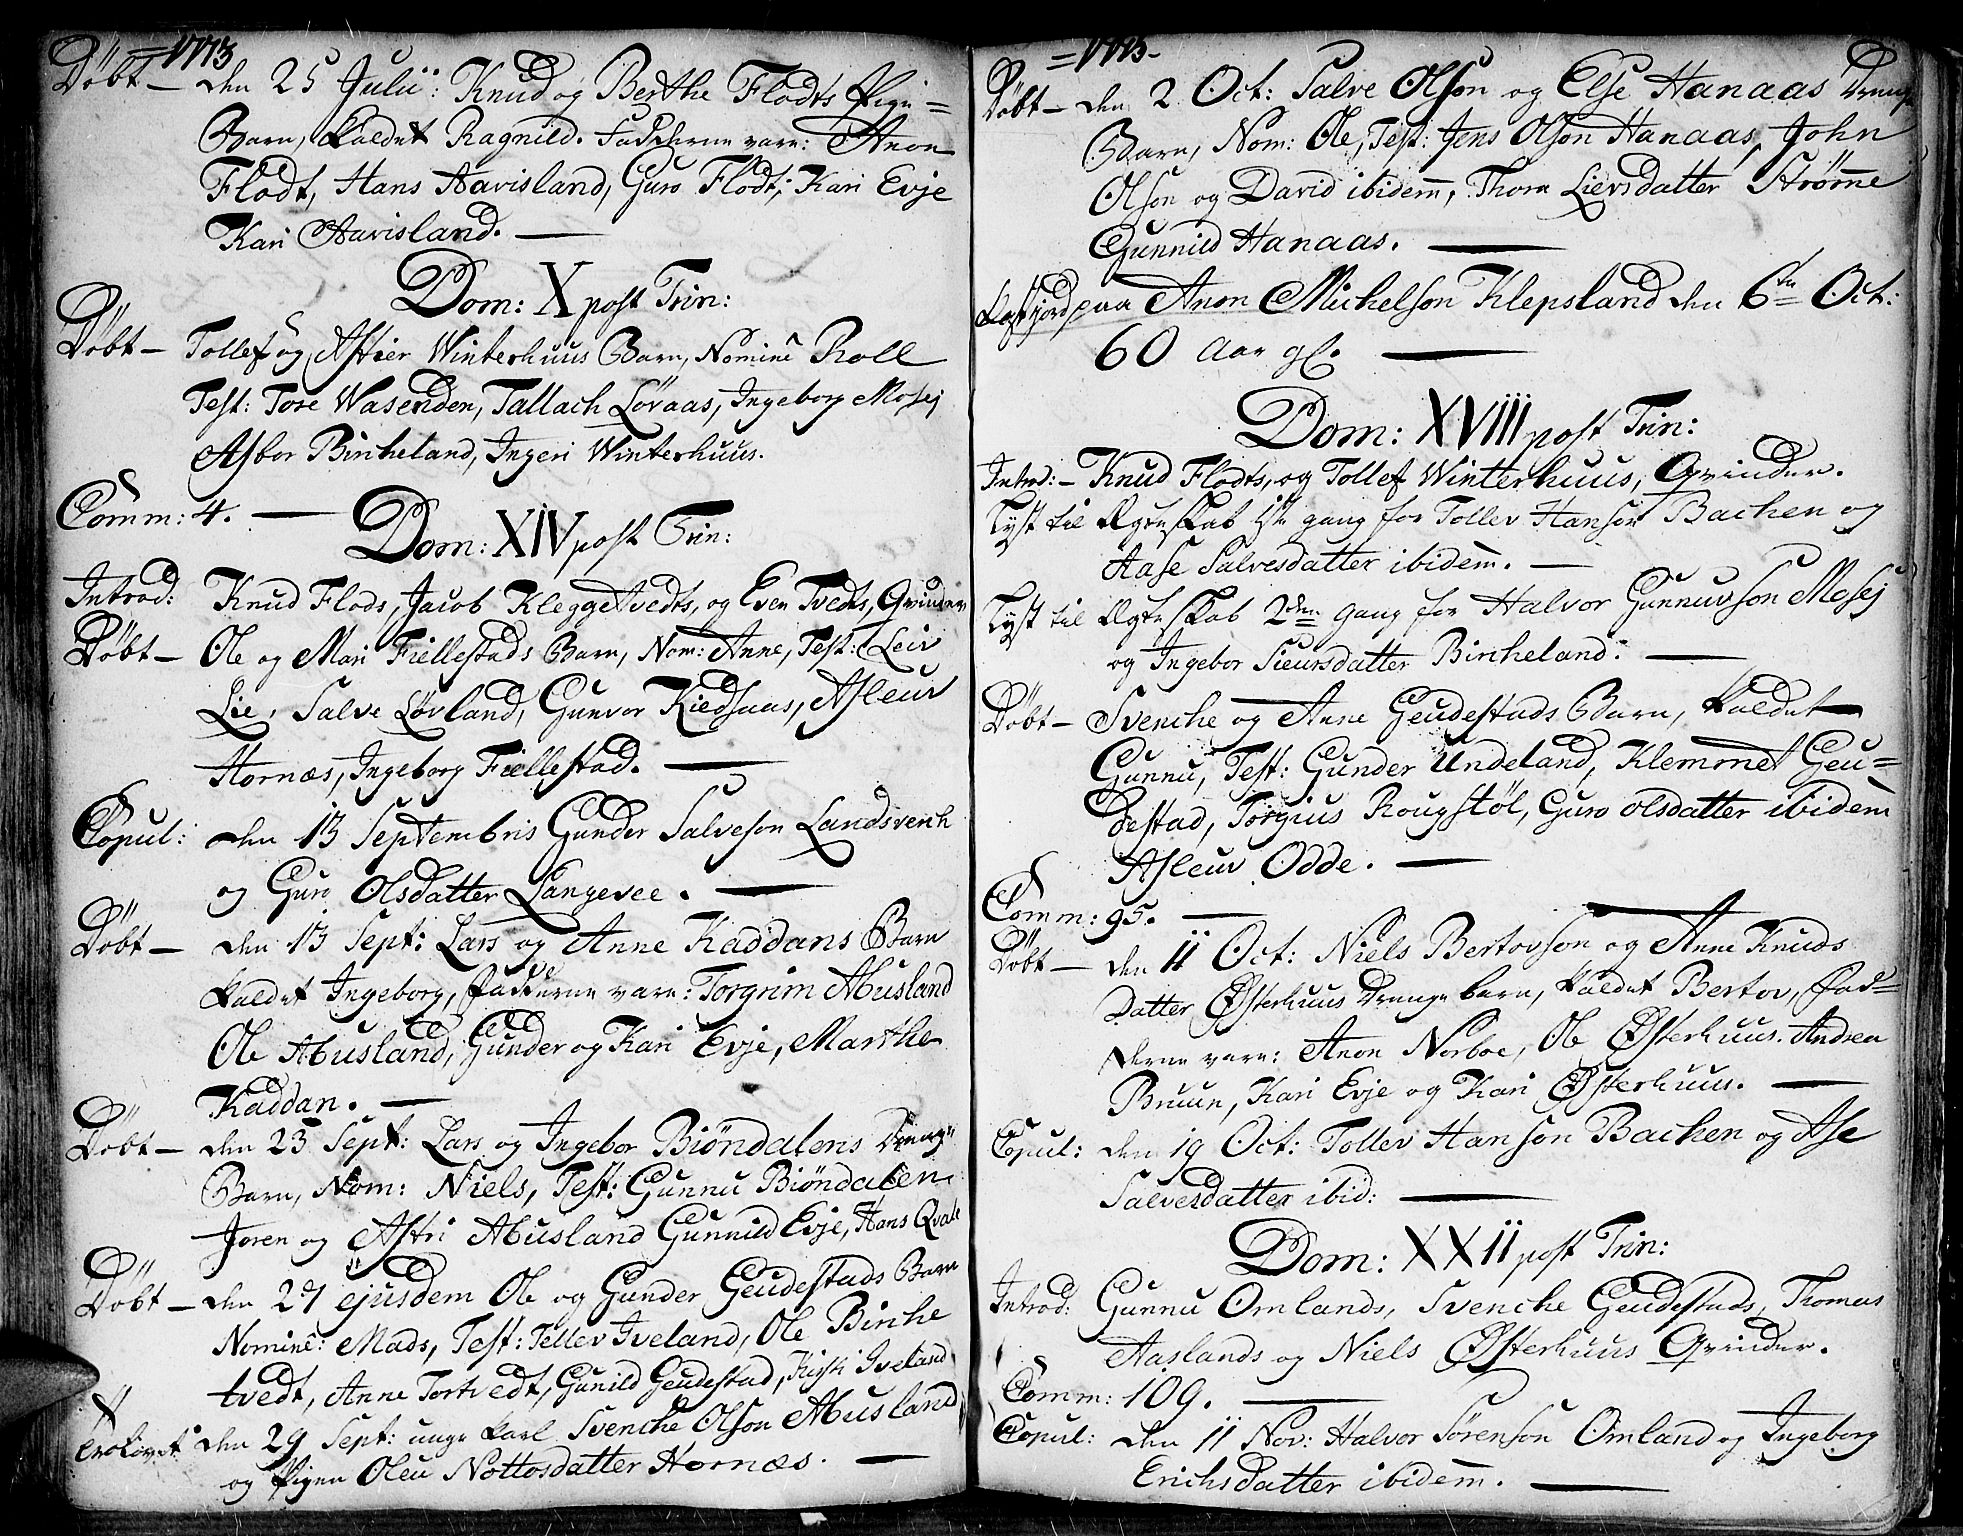 =1773
Döbt — den 25 Julii: Knud og Berthe Flodts Pige=
Barn, kaldet Ragnild. Fadderne vare: Anon
Flodt, Hans Aavisland, Guro Flodt, Kari Evje
Kari Aavisland. —
Dom: X post Trin:
Döbt — Tollef og Astier Winterhuus Barn, Nomine Roll
Test: Tore Wasenden, Tallach Løvaas, Ingeborg Mosej
Asbor Birkeland, Ingeri Winterhuus.
Comm: 4. —
Dom: XIV post Trin:
Introd: Knud Flods, Jacob Kleggetvedts, og Even Tvedts, Qvinder
Döbt — Ole og Mari Fiellestads Barn, Nom: Anne, Test: Leiv
Lie, Salve Lövland, Gunvor Kiedsaas, Asleuv
Hornæs, Ingeborg Fiellestad. —
Copul: den 13 Septembris Gunder Salveson Landsverch
og Guro Olsdatter Langevee. —
Döbt — den 13 Sept: Lars og Anne Kaddans Barn
kaldet Ingeborg, Fadderne vare: Torgrim Abusland
Ole Abusland, Gunder og Kari Evje, Marthe
Kaddan. —
Döbt — den 23 Sept: Lars og Ingebor Biöndalens Drenge
Barn, Nom: Niels, Test: Gunnu Biöndalen
Joren og Astri Abusland Gunnild Evje, Hans Qvale
Döbt — den 27 ejusdem Ole og Gunder Geudestads Barn
Nomine: Mads, Test: Tellev Iveland, Ole Birche
tvedt, Anne Tortvedt, Gunild Geudestad, Kisti Iveland
Trolovet den 29 Sept: unge Karl Svenche Olson Abusland
og Pigen Oleu Nottosdatter Hornæs. —
=1773-
Döbt — den 2 Oct: Salve Olson og Else Hanaas Drenge
Barn, Nom: Ole, Test: Jens Olson Hanaas, John
Olson og David ibidem, Thora Lievsdatter Strømme
Gunnild Hanaas. —
Kast jord paa Anon Michelson Klepsland den 6te Oct:
60 Aar gl. —
Dom: XVIII post Trin:
Introd: — Knud Flodts, og Tollef Winterhuus, Qvinder.
Lyst til Ægteskab 1ste gang for Tollev Hanson Bachen og
Aase Salvesdatter ibidem. —
Lyst til Ægteskab 2den gang for Halvor Gunnuvson Mosej
og Ingebor Sieursdatter Birkeland: —
Döbt — Svenche og Anne Geudestads Barn, kaldet
Gunnu, Test: Gunder Undeland, Klemmet Geu=
destad, Torgius Rougstöl, Guro Olsdatter ibidem
Asleuv Odde. —
Comm: 95. —
Döbt — den 11 Oct: Niels Bertovson og Anne Knuds
Datter Østerhuus Drenge barn, kaldet Bertov, Fad=
derne vare: Anon Norboe, Ole Østerhuus. Andrea
Bruun, Kari Evje og Kari Østerhuus. —
Copul: den 19 Oct: Tollev Hanson Bachen og Ase
Salvesdatter ibid: —
Dom: XXII post Trin:
Introd: Gunnu Omlands, Svenche Geudestads, Thomas
Aaslands og Niels Østerhuus Qvinder.
Comm: 109. —
Copul: den 11 Nov: Halvor Sörenson Omland og Ingeborg
Erichsdatter ibidem. —